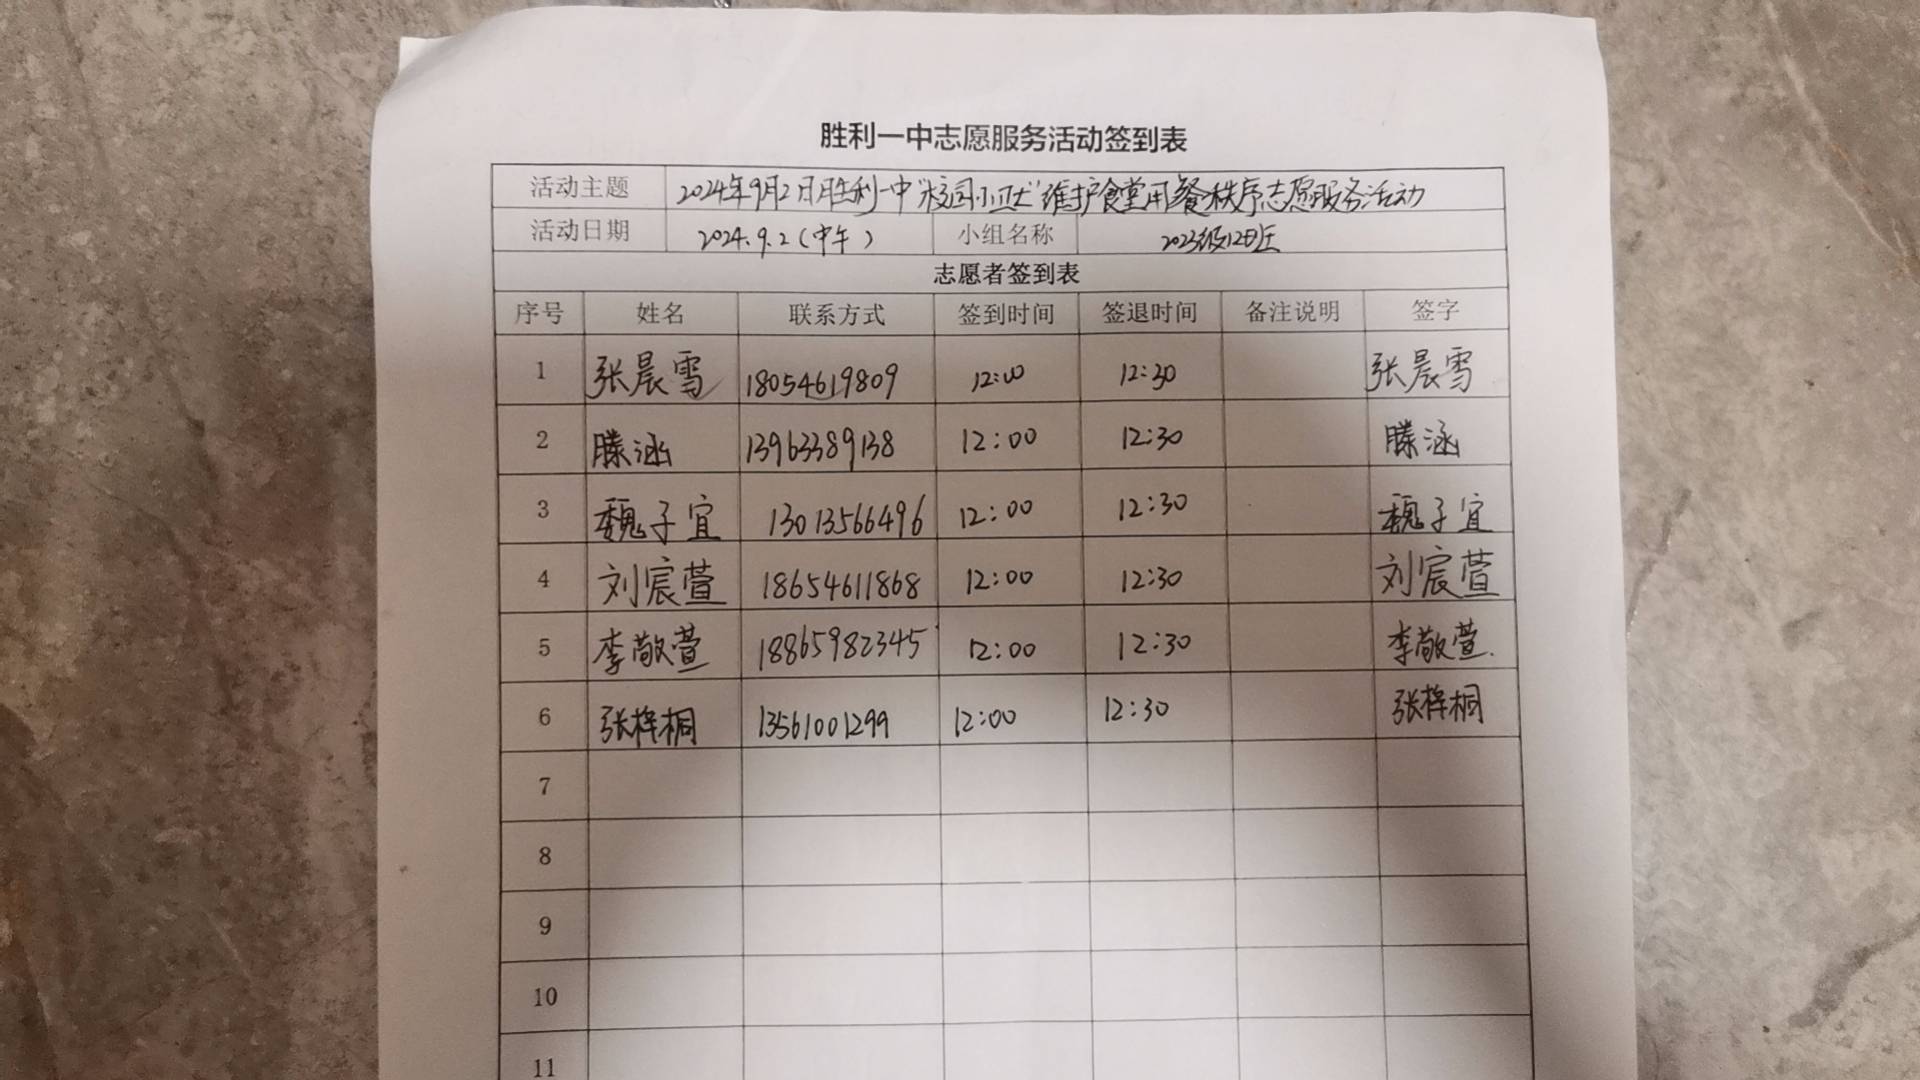 胜利一中志愿服务活动签到表
活动主题 2024年9月2日胜利一中"校园小卫士"维护食堂用餐秩序志愿服务活动
活动日期 2024.9.2(中午) 小组名称 2023级12班
志愿者签到表
序号 姓名 联系方式 签到时间 签退时间 备注说明 签字
1 张晨雪 18054619809 12:00 12:30 张晨雪
2 滕涵 13963389138 12:00 12:30 滕涵
3 魏子宜 13013566496 12:00 12:30 魏子宜
4 刘宸萱 18654611868 12:00 12:30 刘宸萱
5 李敬萱 18865982345 12:00 12:30 李敬萱.
6 张梓桐 13561001299 12:00 12:30 张梓桐
7
8
9
10
11